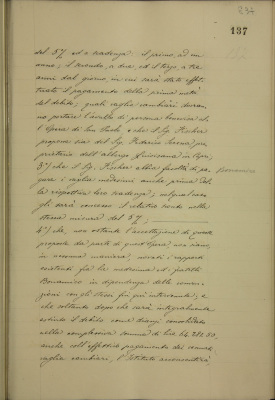 237
137
del 5% ed a scadenza: il primo, ad un
anno; il secondo, a due; ed il terzo a tre
anni dal giorno, in cui sarà stato effet-
tuato il pagamento della prima metà
del debito; quali vaglia cambiari dovran-
no portare l'avallo di persona benevisa al-
l'Opera di San Paolo e che il Sig. Fischer
propone sia del Sig. Federico Serena, pro-
prietario dell'albergo Quisisana in Capri;
3°) che il Sig. Fischer abbia facoltà di pa-
gare i vaglia medesimi anche prima del-
la rispettiva loro scadenza, nel qual caso
gli sarà concesso il relativo sconto nella
stessa misura del 5%;
4°) che, non ostante l'accettazione di queste
proposte da parte di quest'Opera, non siano,
in nessuna maniera, novati i rapporti
esistenti fra la medesima ed i fratelli
Bonamico in dipendenza delle conven-
zioni con gli stessi fin qui intervenute; e
che soltanto dopo che sarà integralmente
estinto il debito come dianzi consolidato
nella complessiva somma di lire 64.282.80,
anche coll'effettivo pagamento dei cennati
vaglia cambiari, l'Istituto riconoscerà